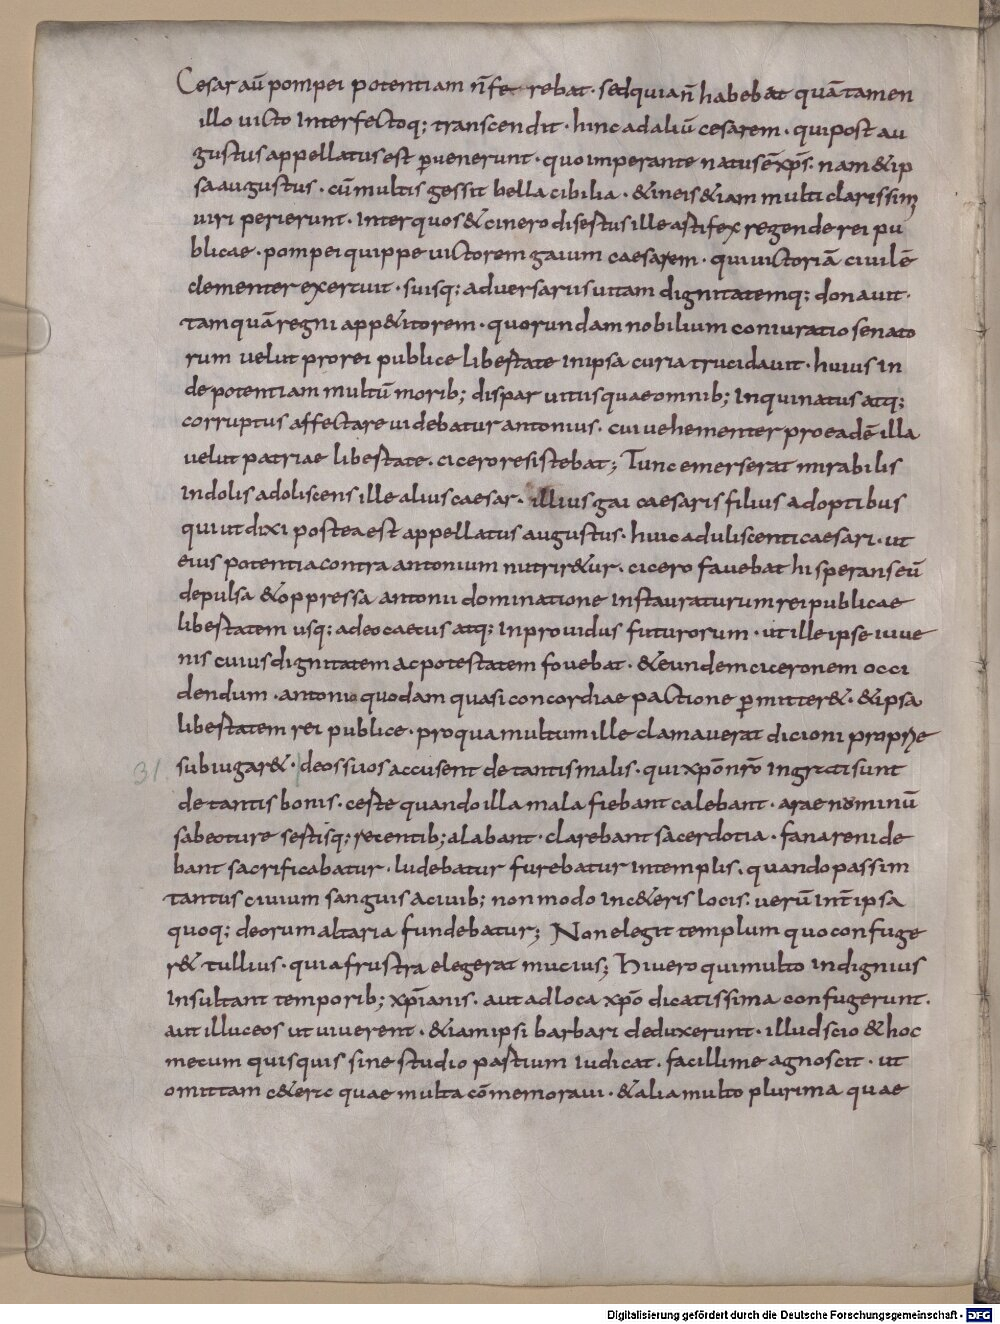 Cesar aū pompei potentiam n̄ fe rebat · sed quia n̄ habebat quā tamen
illo uicto interfectoq; transcendit · hinc ad aliū cesarem · qui post au
gustus appellatus est ꝑuenerunt · quo imperante natus ē xp̄s · nam & ip
sa augustus · cū multis gessit bella cibilia · & in eis & iam multi clarissim
uiri perierunt · inter quos & cinero disestus ille astifex regende rei pu
blicae · pompei quippe uictorem gaium caesarem · qui uictoriā ciuilē
clementer exercuit · suisq; aduersariis uitam dignitatemq; donauit ·
tamquā regni app&itorem · quorundam nobilium coniuratio senato
rum uelut pro rei publice libestate in ipsa curia trucidauit · huius in
de potentiam multū morib; dispar uitiis quae omnib; inquinatus atq;
corruptus affectare uidebatur antonius · cui uehementer pro eadē illa
uelut patriae libestate · cicero resistebat; Tunc emerserat mirabilis
indolis adoliscens ille alius caesar · illius gai caesaris filius adoptibus
qui ut dixi postea est appellatus augustus · huic aduliscenti caesari · ut
eius potentia contra antonium nutrir&ur · cicero fauebat hi sperans eū
depulsa & oppressa antonii dominatione instauraturum rei publicae
libestatem usq; adeo caecus atq; inprouidus futurorum · ut ille ipse iuue
nis cuius dignitatem ac potestatem fouebat · & eundem ciceronem occi
dendum · antonio quodam quasi concordiae pactione ꝑmitter& · & ipsa
libestatem rei publice · pro qua multum ille clamauerat dicioni propriae
31 subiugar& · deos suos accusent de tantis malis · qui xp̄o nr̄o ingrati sunt
de tantis bonis · ceste quando illa mala fiebant calebant · arae nominū
sabeoture sestisq; recentib; alabant · clarebant sacerdotia · fana renide
bant sacrificabatur · ludebatur furebatur in templis · quando passim
tantus ciuium sanguis a ciuib; non modo in c&eris locis · uerū int̄ ipsa
quoq; deorum altaria fundebatur; Non elegit templum quo confuge
r& tullius · quia frustra elegerat mucius; Hi uero qui multo indignius
insultant temporib; xp̄ianis · aut ad loca xp̄o dicatissima confugerunt ·
aut illuc eos ut uiuerent · & iam ipsi barbari deduxerunt · illud scio & hoc
mecum quisquis sine studio pastium iudicat · facillime agnoscit · ut
omittam c&era quae multa cōmemoraui · & alia multo plurima quae
Digitalisierung gefördert durch die Deutsche Forschungsgemeinschaft - DFG